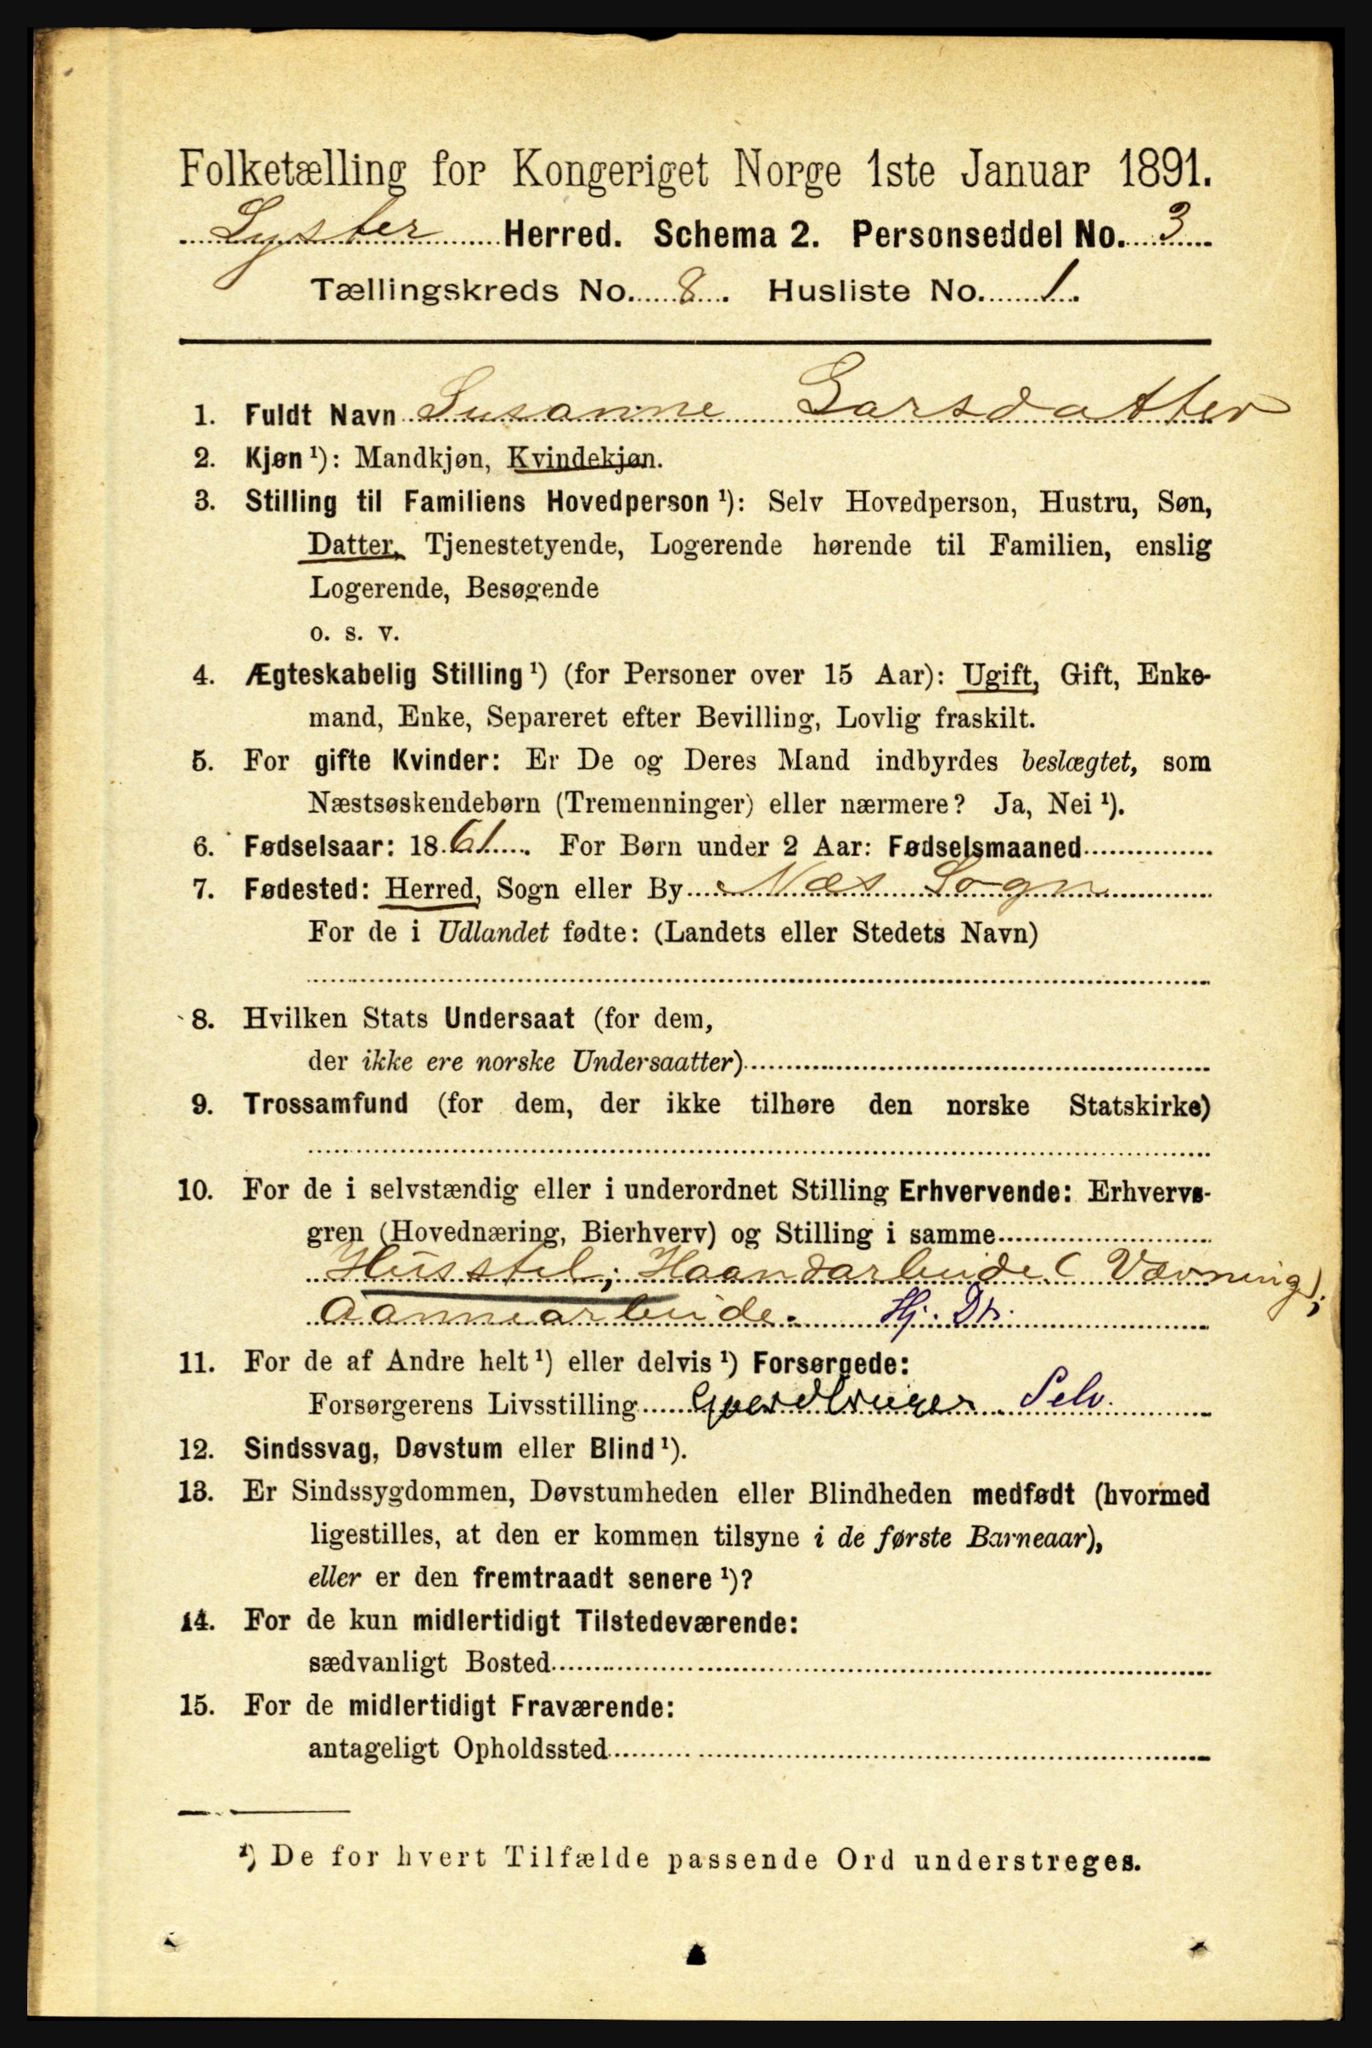 Folketælling for Kongeriget Norge 1ste Januar 1891.
Lyster Herred. Schema 2. Personseddel No. 3
Tællingskreds No. 8. Husliste No. 1.
1. Fuldt Navn Susanne Larsdatter
2. Kjøn ¹): Mandkjøn, Kvindekjøn.
3. Stilling til Familiens Hovedperson ¹): Selv Hovedperson, Hustru, Søn,
Datter, Tjenestetyende, Logerende hørende til Familien, enslig
Logerende, Besøgende
o. s. v.
4. Ægteskabelig Stilling ¹) (for Personer over 15 Aar): Ugift, Gift, Enke-
mand, Enke, Separeret efter Bevilling, Lovlig fraskilt.
5. For gifte Kvinder: Er De og Deres Mand indbyrdes beslægtet, som
Næstsøskendebørn (Tremenninger) eller nærmere? Ja, Nei ¹).
6. Fødselsaar: 1861. For Børn under 2 Aar: Fødselsmaaned
7. Fødested: Herred, Sogn eller By Næs Sogn
For de i Udlandet fødte: (Landets eller Stedets Navn)
8. Hvilken Stats Undersaat (for dem,
der ikke ere norske Undersaatter)
9. Trossamfund (for dem, der ikke tilhøre den norske Statskirke)
10. For de i selvstændig eller i underordnet Stilling Erhvervende: Erhvervs-
gren (Hovednæring, Bierhverv) og Stilling i samme
Husstel; Haandarbeide (Vævning);
aannearbeide. Hj. Dt.
11. For de af Andre helt ¹) eller delvis ¹) Forsørgede:
Forsørgerens Livsstilling Gaardbruger Selv.
12. Sindssvag, Døvstum eller Blind ¹).
13. Er Sindssygdommen, Døvstumheden eller Blindheden medfødt (hvormed
ligestilles, at den er kommen tilsyne i de første Barneaar),
eller er den fremtraadt senere ¹)?
14. For de kun midlertidigt Tilstedeværende:
sædvanligt Bosted
15. For de midlertidigt Fraværende:
antageligt Opholdssted
¹) De for hvert Tilfælde passende Ord understreges.